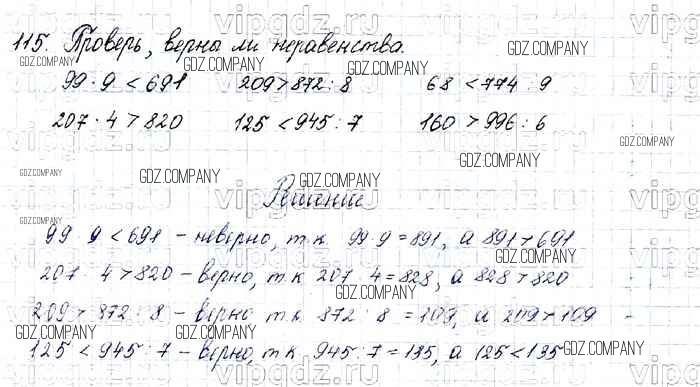 115. Проверь, верны ли неравенства.
99 · 9 < 691 209 > 872 : 8 68 < 774 : 9
207 · 4 > 820 125 < 945 : 7 160 > 996 : 6
Решение
99 9 < 691 – неверно, т к 99 9 = 891, а 891 > 691
207 4 > 820 – верно, т к 207 4 = 828, а 828 > 820
209 > 872 : 8 – верно т к 872 : 8 = 109, а 209 > 109
125 < 945 : 7 – верно, т к 945 : 7 = 135, а 125 < 135